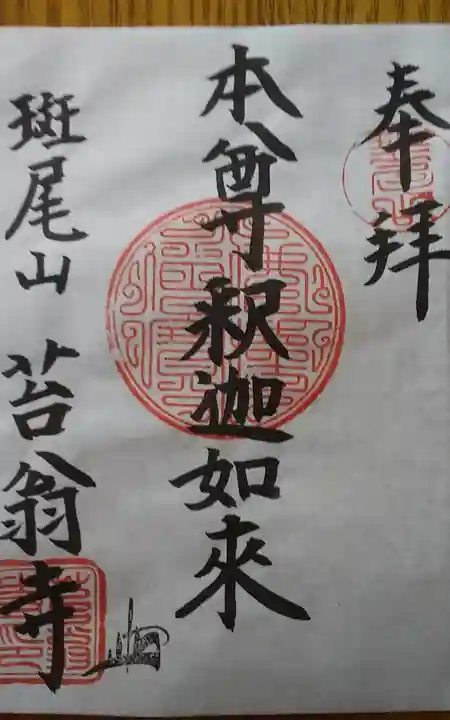 奉拜
本尊釈迦如來
斑尾山 苔翁寺